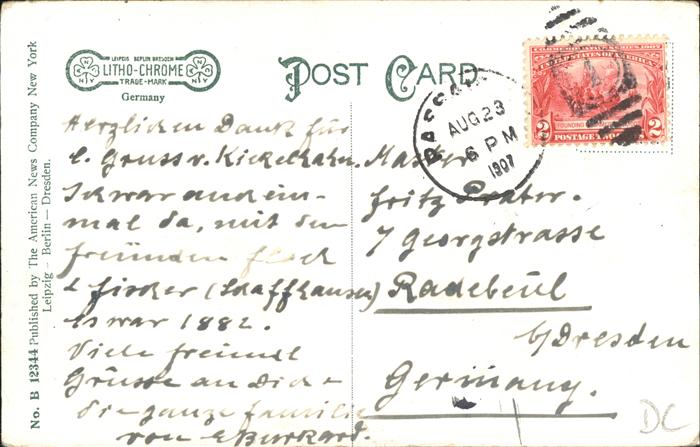 No. B 12344 Published by The American News Company New York
Leipzig – Berlin – Dresden.
LEIPZIG BERLIN DRESDEN
LITHO-CHROME
TRADE-MARK
Germany
POST CARD
PASSAIC
AUG 23
6 PM
1907
COMMEMORATIVE SERIES 1907
UNITED STATES OF AMERICA
FOUNDING
2 2
POSTAGE
Herzlichen Dank für
d. Gruss v. Kickelhahn.
Ich war auch ein-
mal da, mit den
freunden
& Fischer (Schaffhausen)
Es war 1882.
Viele freundl
Grüsse an Dich &
die ganze familie
von E Burkard.
Master
Fritz Prater.
7 Georgstrasse
Radebeul
b/Dresden
Germany.
DC